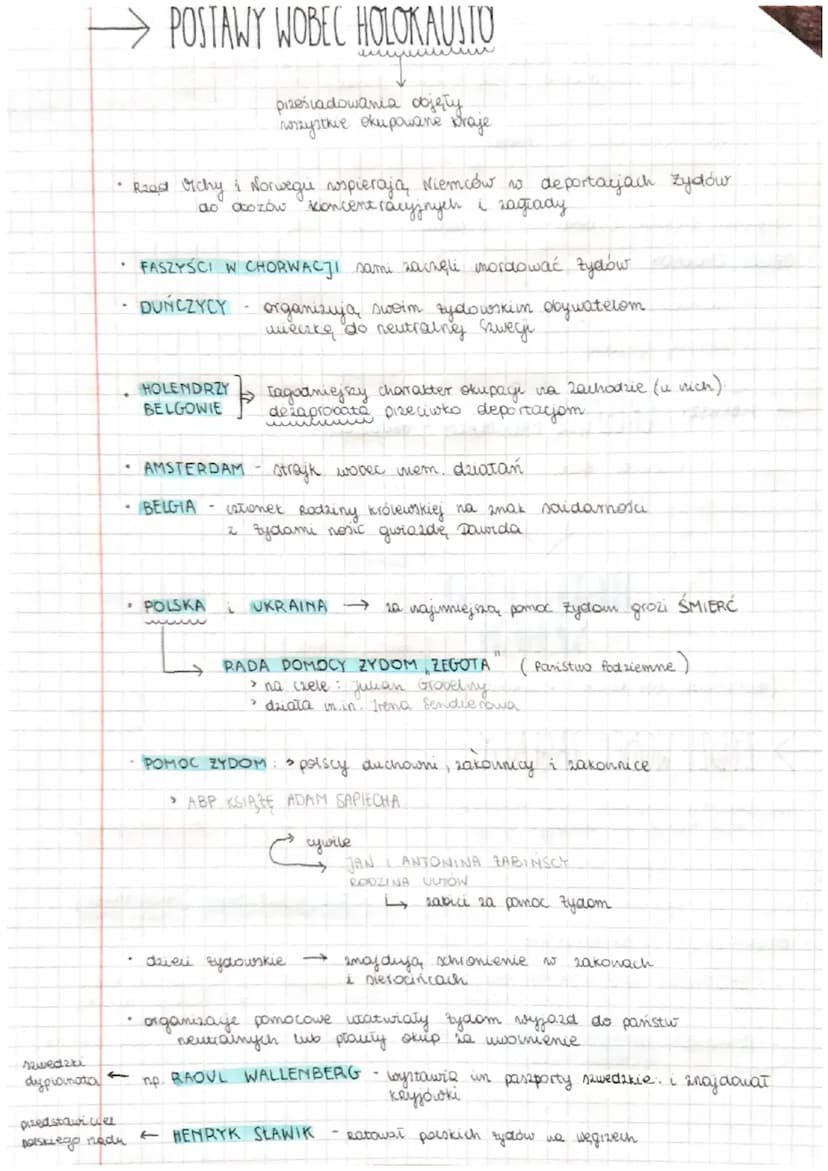 → POSTAWY WOBEC HOLOKAUSTU
prześladowania objęły
wszystkie okupowane kraje
• Rząd Vichy i Norwegii wspierają Niemców w deportacjach Żydów
do obozów koncentracyjnych i zagłady
• FASZYŚCI W CHORWACJI sami zaczęli mordować Żydów
• DUŃCZYCY - organizują swoim żydowskim obywatelom
ucieczkę do neutralnej Szwecji
• HOLENDRZY ⇒ łagodniejszy charakter okupacji na zachodzie (u nich)
BELGOWIE dezaprobata przeciwko deportacjom
• AMSTERDAM - strajk wobec niem. działań
• BELGIA - członek Rodziny królewskiej na znak solidarności
z Żydami nosić gwiazdę Dawida
• POLSKA i UKRAINA → za najmniejszą pomoc Żydom grozi ŚMIERĆ
→ RADA POMOCY ŻYDOM „ŻEGOTA" (Państwo Podziemne)
> na czele: Julian Grobelny
> działa m.in. Irena Sendlerowa
• POMOC ŻYDOM: > polscy duchowni, zakonnicy i zakonnice
> ABP KSIĄŻĘ ADAM SAPIECHA
cywile
→ JAN I ANTONINA ŻABIŃSCY
RODZINA ULMÓW
↳ zabici za pomoc Żydom
• dzieci żydowskie → znajdują schronienie w zakonach
i sierocińcach
• organizacje pomocowe ułatwiały Żydom wyjazd do państw
neutralnych lub płaciły okup za uwolnienie
szwedzki
dyplomata ← np. RAOUL WALLENBERG - wystawia im paszporty szwedzkie. i znajdował
kryjówki
przedstawiciel
polskiego rządu ← HENRYK SŁAWIK - ratował polskich żydów na węgrzech